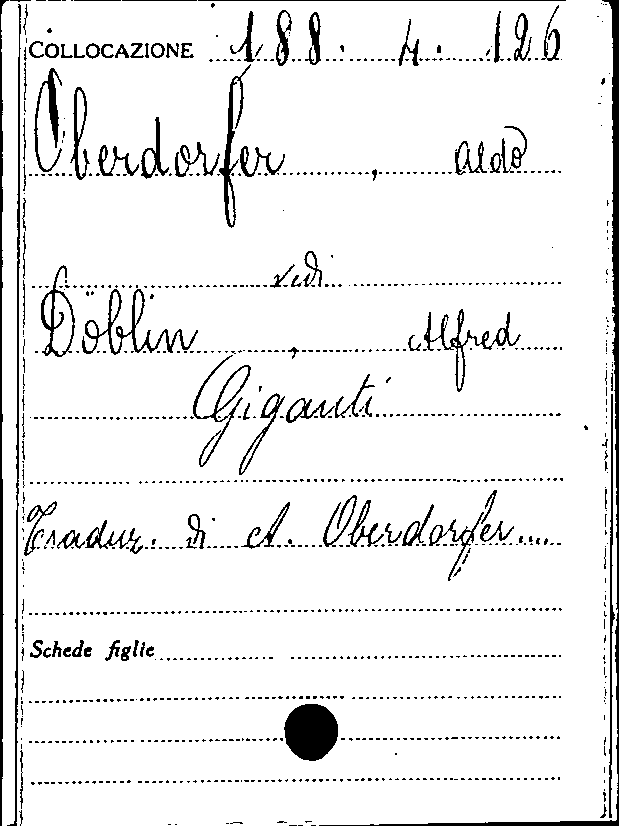 COLLOCAZIONE 188. 4. 126
Oberdorfer, Aldo
vedi
Döblin, Alfred
Giganti
Traduz. di A. Oberdorfer....
Schede figlie